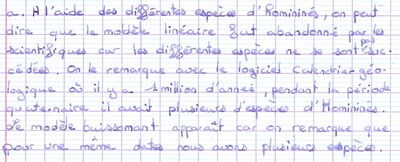 a. A l'aide des différentes espèces d'Homininés, on peut
dire que le modèle linéaire fut abandonné par les
scientifiques car les différentes espèces ne se sont pas suc-
cédées. On le remarque avec le logiciel Calendrier géo-
logique où il y a 1 million d'année, pendant la période
quaternaire il avait plusieurs d'espèces d'Homininés.
Le modèle buissonant apparaît car on remarque que
pour une même dates nous avons plusieurs espèces.